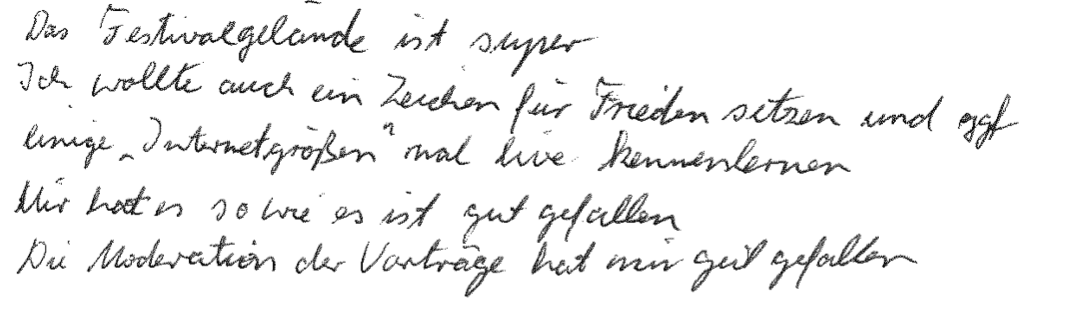 Das Festivalgelände ist super
Ich wollte auch ein Zeichen für Frieden sitzen und ggf
einige „Internetgrößen" mal live kennenlernen
Mir hat es so wie es ist gut gefallen
Die Moderation der Vorträge hat mir gut gefallen